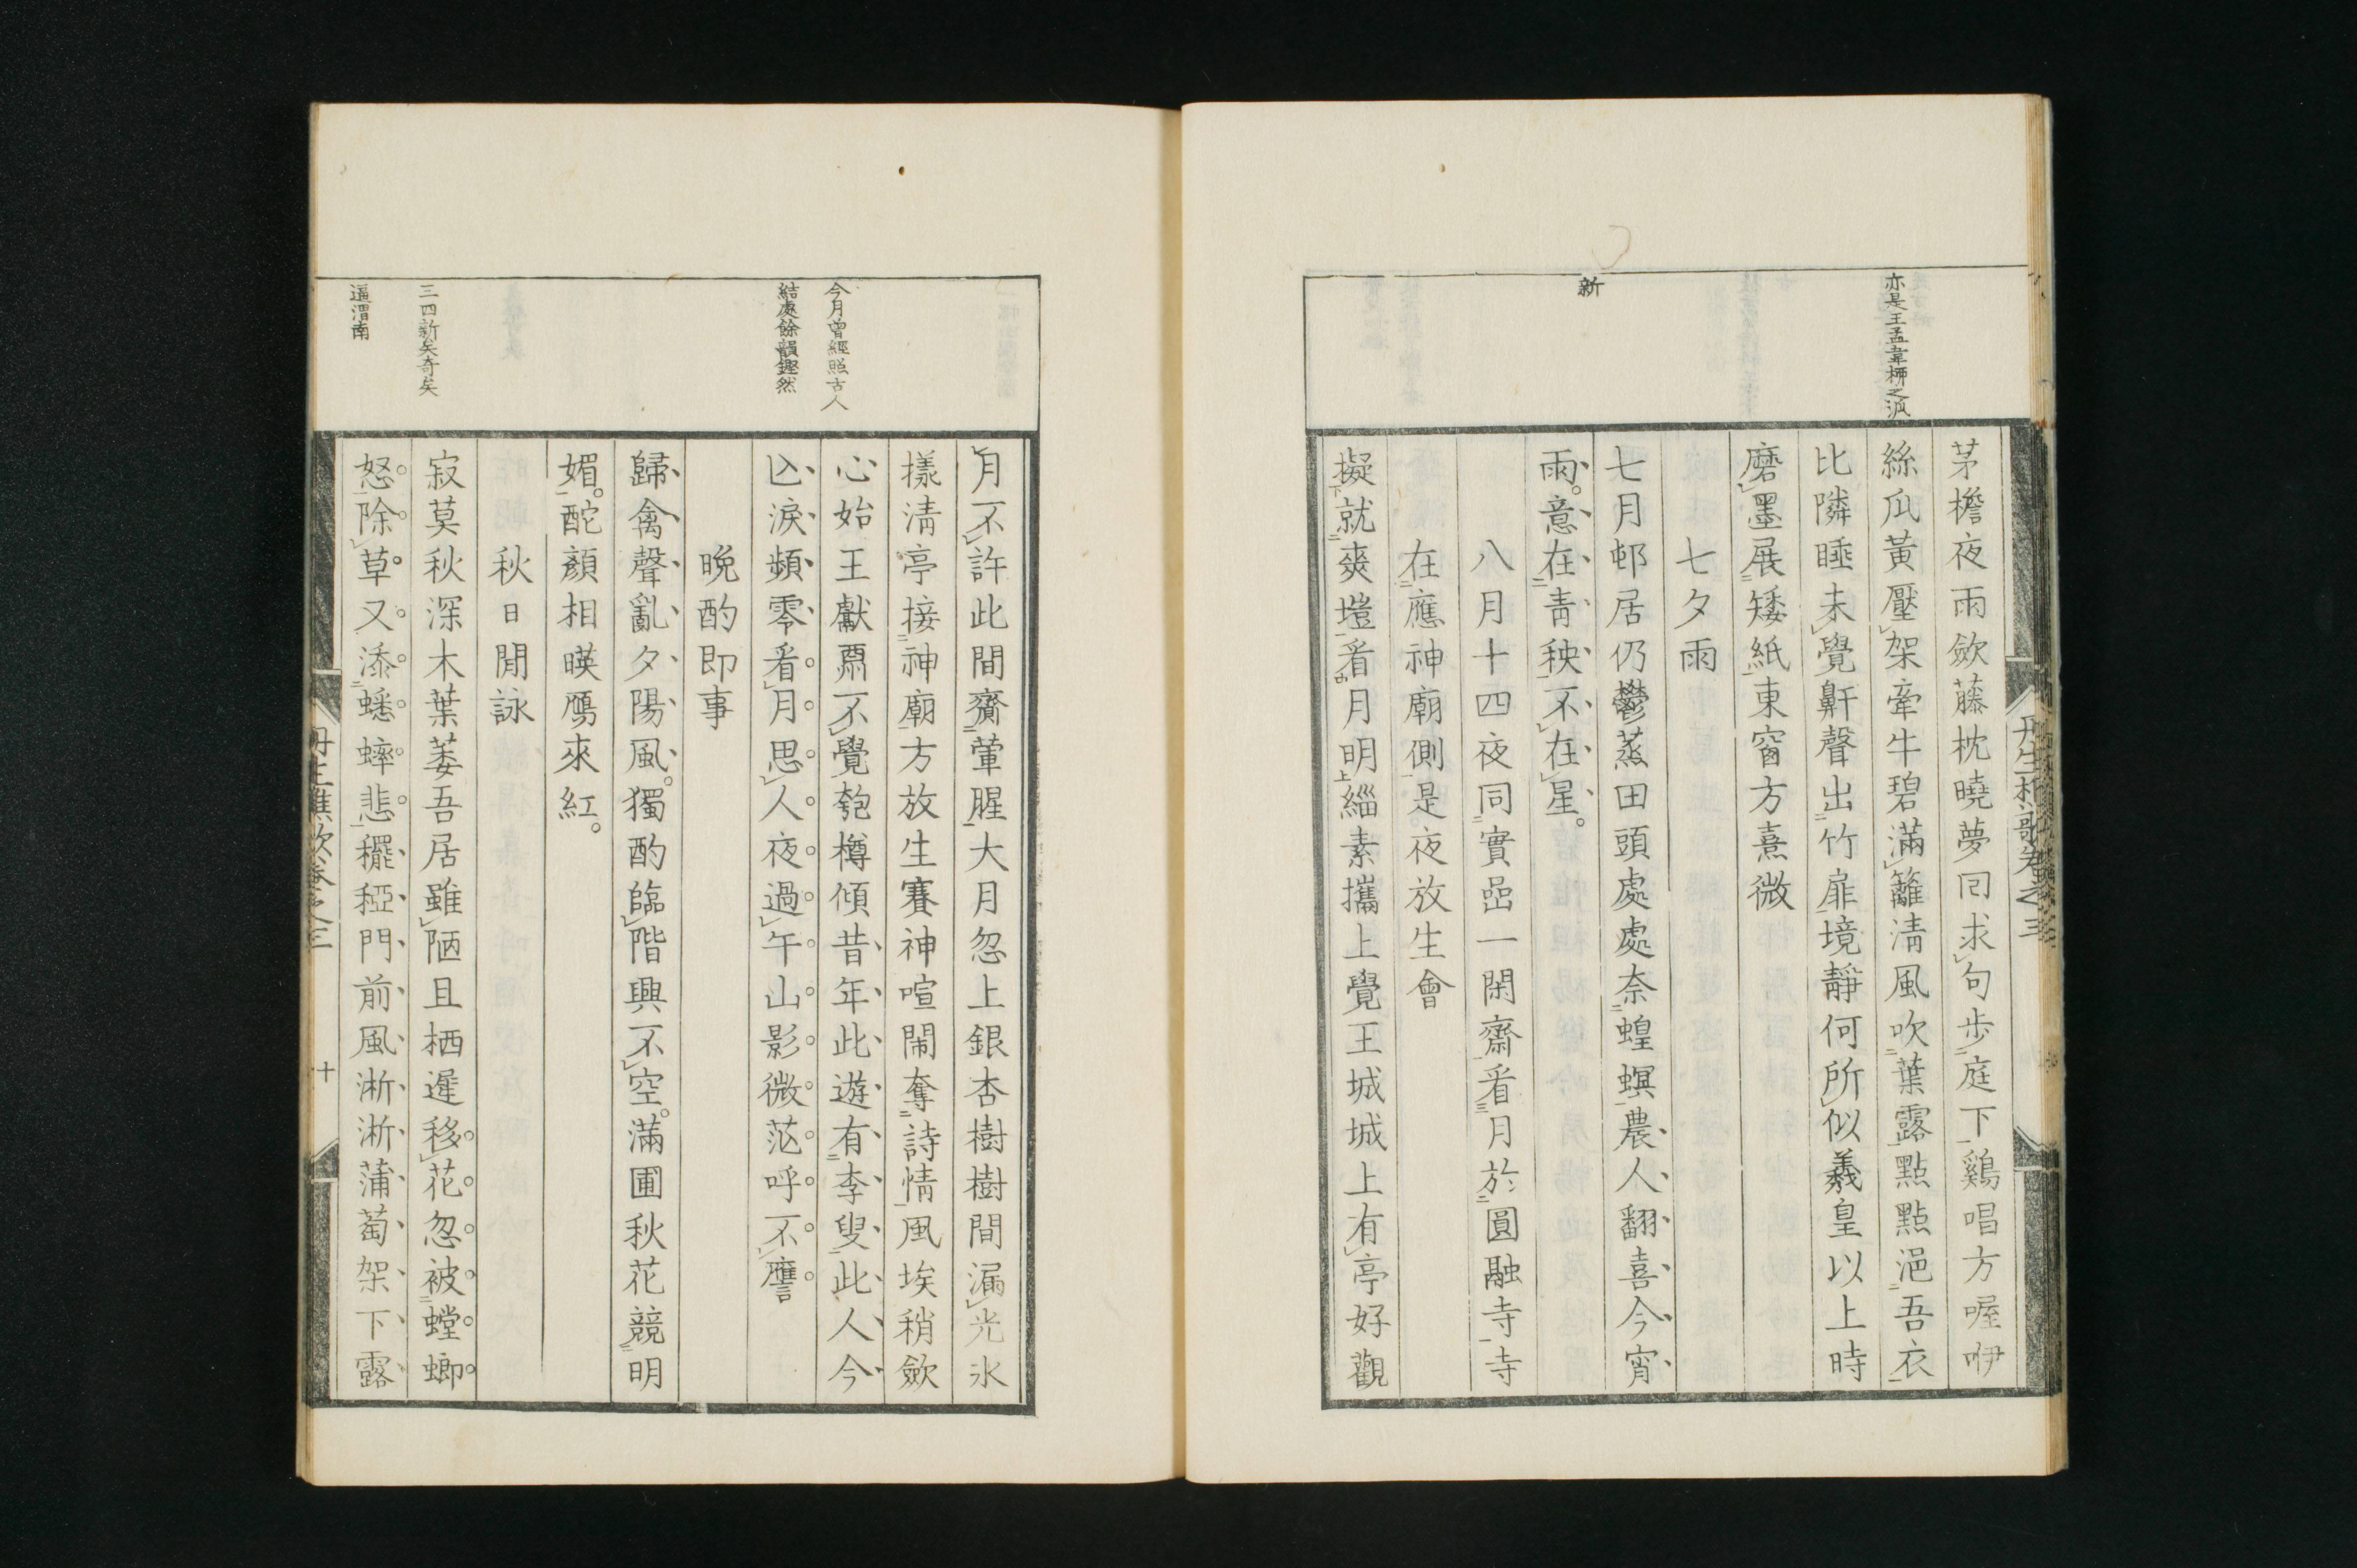 亦是王孟韋柳之派
新
茅檐夜雨歛藤枕曉夢囘求句步庭下鷄唱方喔咿
絲瓜黃壓架牽牛碧滿籬淸風吹葉露點點浥吾衣
比隣睡未覺鼾聲出竹扉境靜何所似羲皇以上時
磨墨展矮紙東窗方熹微
七夕雨
七月邨居仍鬱蒸田頭處處奈蝗螟農人翻喜今宵
雨。意在靑秧不在星。
八月十四夜同實嵒一閑齋看月於圓融寺寺
在應神廟側是夜放生會
擬就爽塏看月明緇素攜上覺王城城上有亭好觀
今月曾經照古人
結處餘韻鏗然
三四新矣奇矣
逼渭南
月不許此間齎葷腥大月忽上銀杏樹樹間漏光氷
樣淸亭接神廟方放生賽神喧鬧奪詩情風埃稍歛
心始王獻酬不覺匏樽傾昔年此遊有李叟此人今
亾淚頻零看月思人夜過午山影微茫呼不譍
晩酌卽事
歸禽聲亂夕陽風。獨酌臨階興不空。滿圃秋花競明
媚。酡顏相暎鴈來紅。
秋日閒詠
寂莫秋深木葉萎吾居雖陋且栖遲移花忽被螳螂
怒除草又添蟋蟀悲䆉稏門前風淅淅蒲萄架下露
十